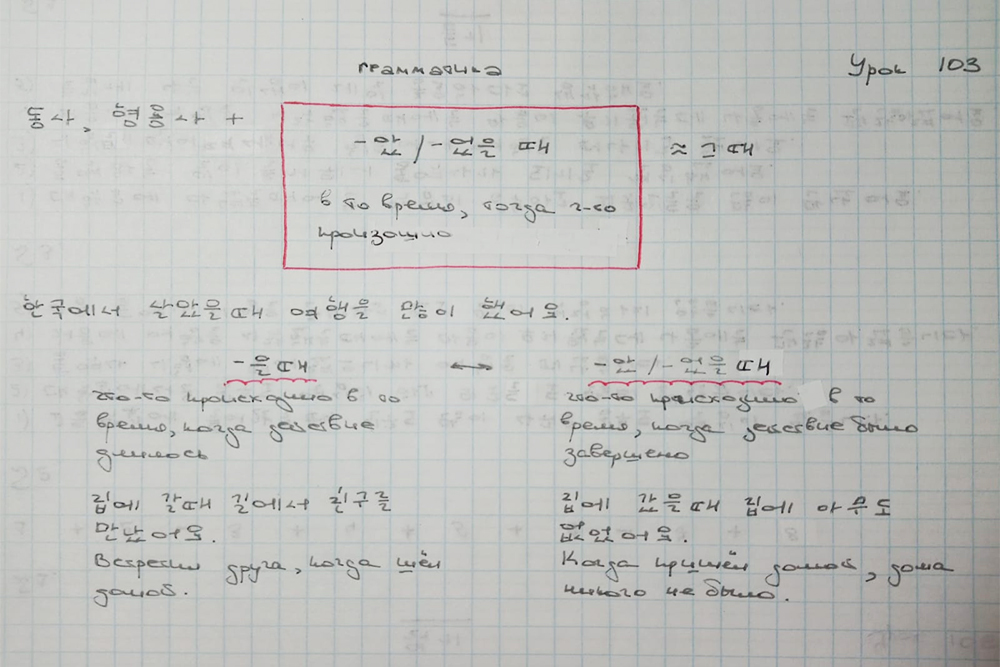 грамматика
Урок 103
동사, 형용사 +
-았/-었을 때
≈ 그때
в то время, тогда ч-то
произошло
한국에서 살았을때 여행을 많이 했어요.
-을때 ↔ -았/-었을 때
что-то происходило в то
время, когда действие
длилось
что-то происходило в то
время, когда действие было
завершено
집에 갈때 길에서 친구를
만났어요.
Встретил друга, когда шёл
домой.
집에 갔을때 집에 아무도
없었어요.
Когда пришёл домой, дома
никого не было.